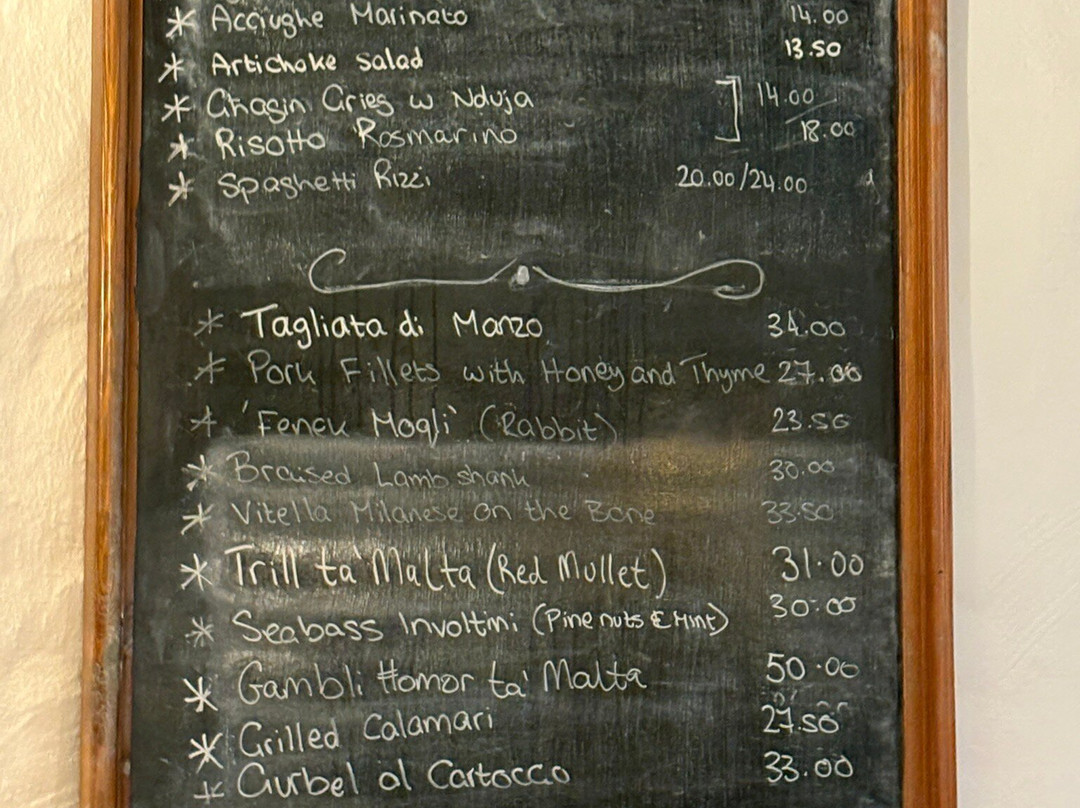 * Acciughe Marinato 14.00
* Artichoke salad 13.50
* Ghagin Gries w Nduja 14.00/
* Risotto Rosmarino 18.00
* Spaghetti Rizzi 20.00/24.00
* Tagliata di Manzo 34.00
* Pork Fillets with Honey and Thyme 27.00
* 'Fenek Moqli' (Rabbit) 23.50
* Braised Lamb shank 30.00
* Vitella Milanese on the Bone 33.50
* Trill ta' Malta (Red Mullet) 31.00
* Seabass Involtini (Pine nuts & Mint) 30.00
* Gambli Homor ta' Malta 50.00
* Grilled Calamari 27.50
* Gurbel al Cartocco 33.00